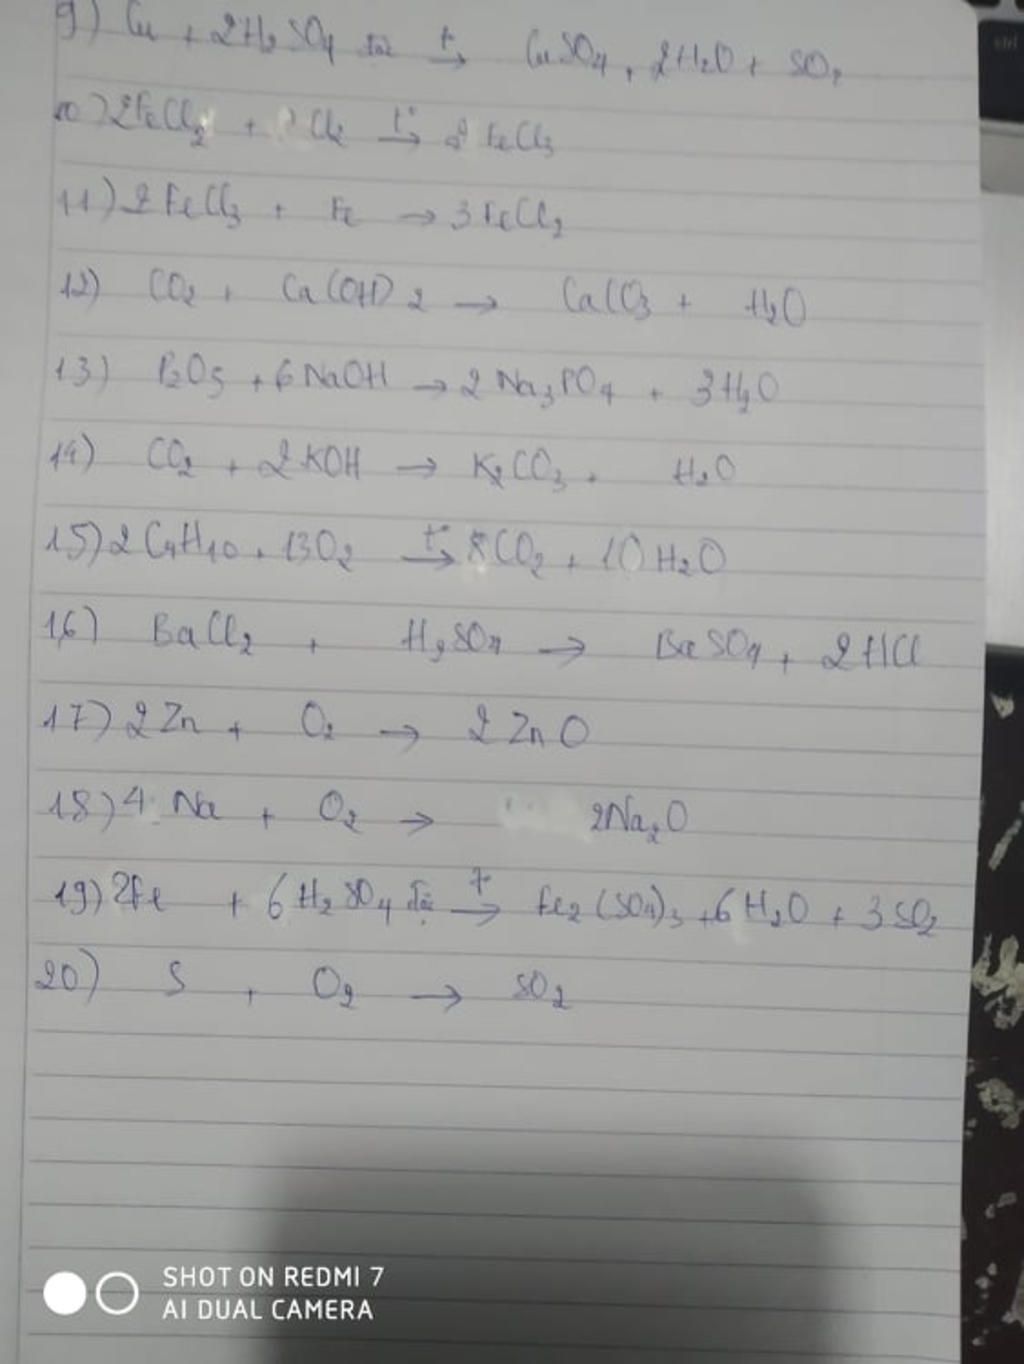 9) Cu + 2H₂SO₄ đặc t° → CuSO₄ + 2H₂O + SO₂
10) 2FeCl₂ + Cl₂ t° → 2FeCl₃
11) 2FeCl₃ + Fe → 3FeCl₂
12) CO₂ + Ca(OH)₂ → CaCO₃ + H₂O
13) P₂O₅ + 6NaOH → 2Na₃PO₄ + 3H₂O
14) CO₂ + 2KOH → K₂CO₃ + H₂O
15) 2C₄H₁₀ + 13O₂ t° → 8CO₂ + 10H₂O
16) BaCl₂ + H₂SO₄ → BaSO₄ + 2HCl
17) 2Zn + O₂ → 2ZnO
18) 4Na + O₂ → 2Na₂O
19) 2Fe + 6H₂SO₄ đặc t° → Fe₂(SO₄)₃ + 6H₂O + 3SO₂
20) S + O₂ → SO₂
SHOT ON REDMI 7
AI DUAL CAMERA